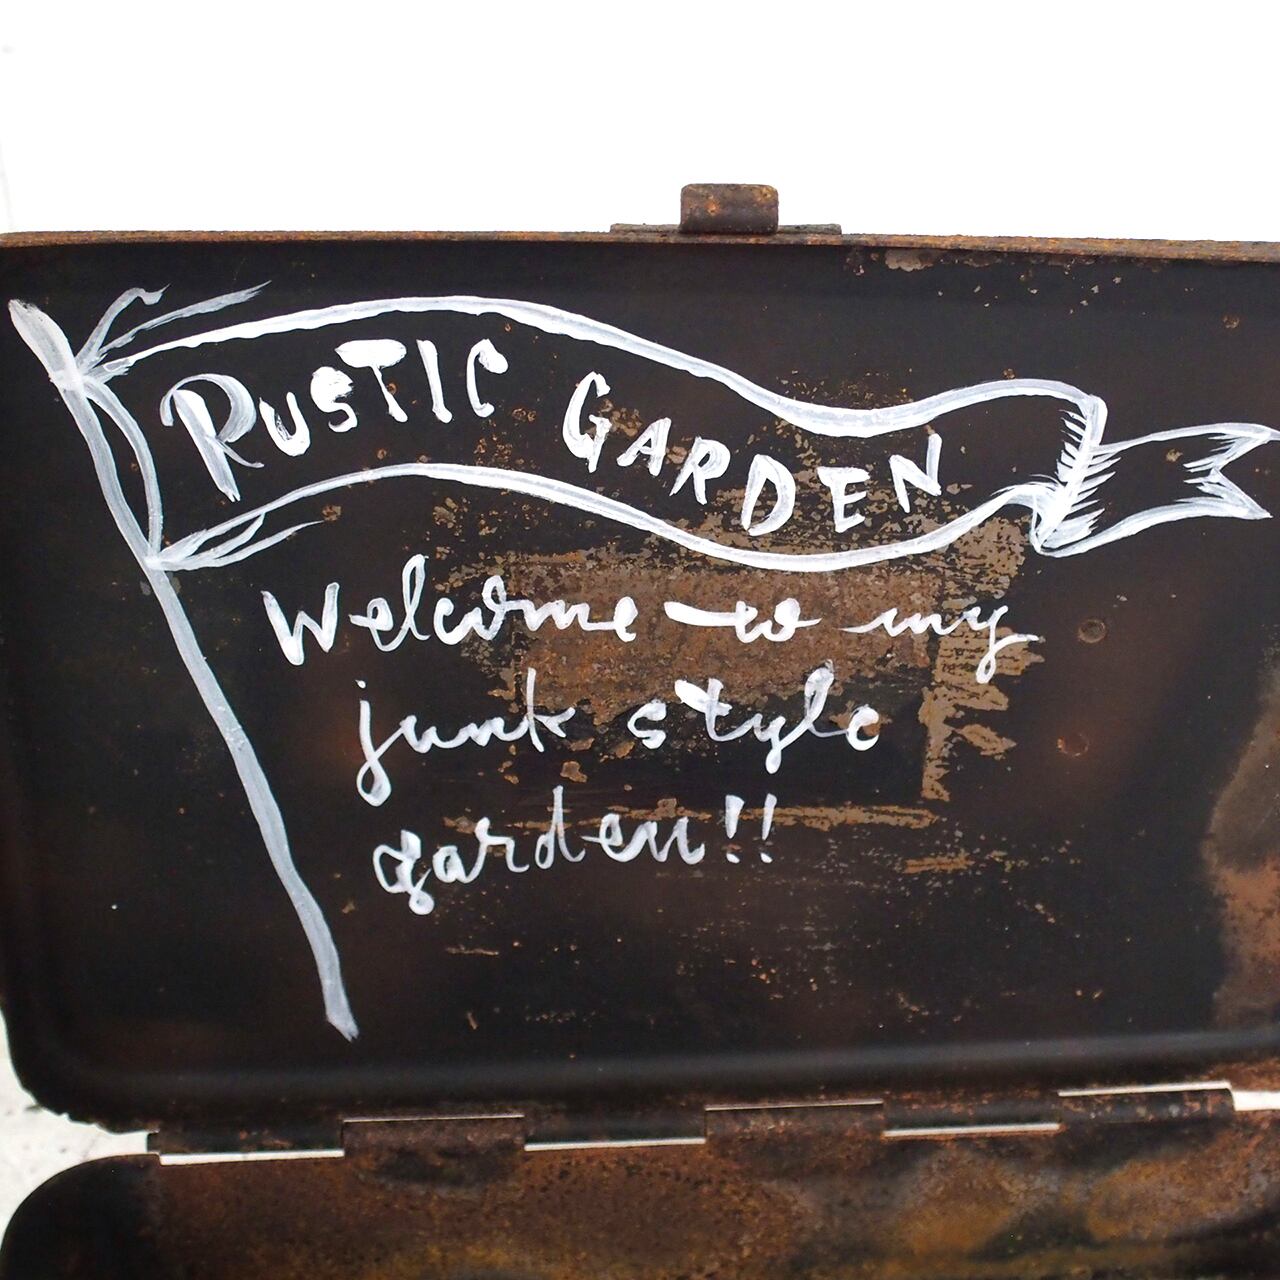 RUSTIC GARDEN
Welcome to my
junk style
garden!!